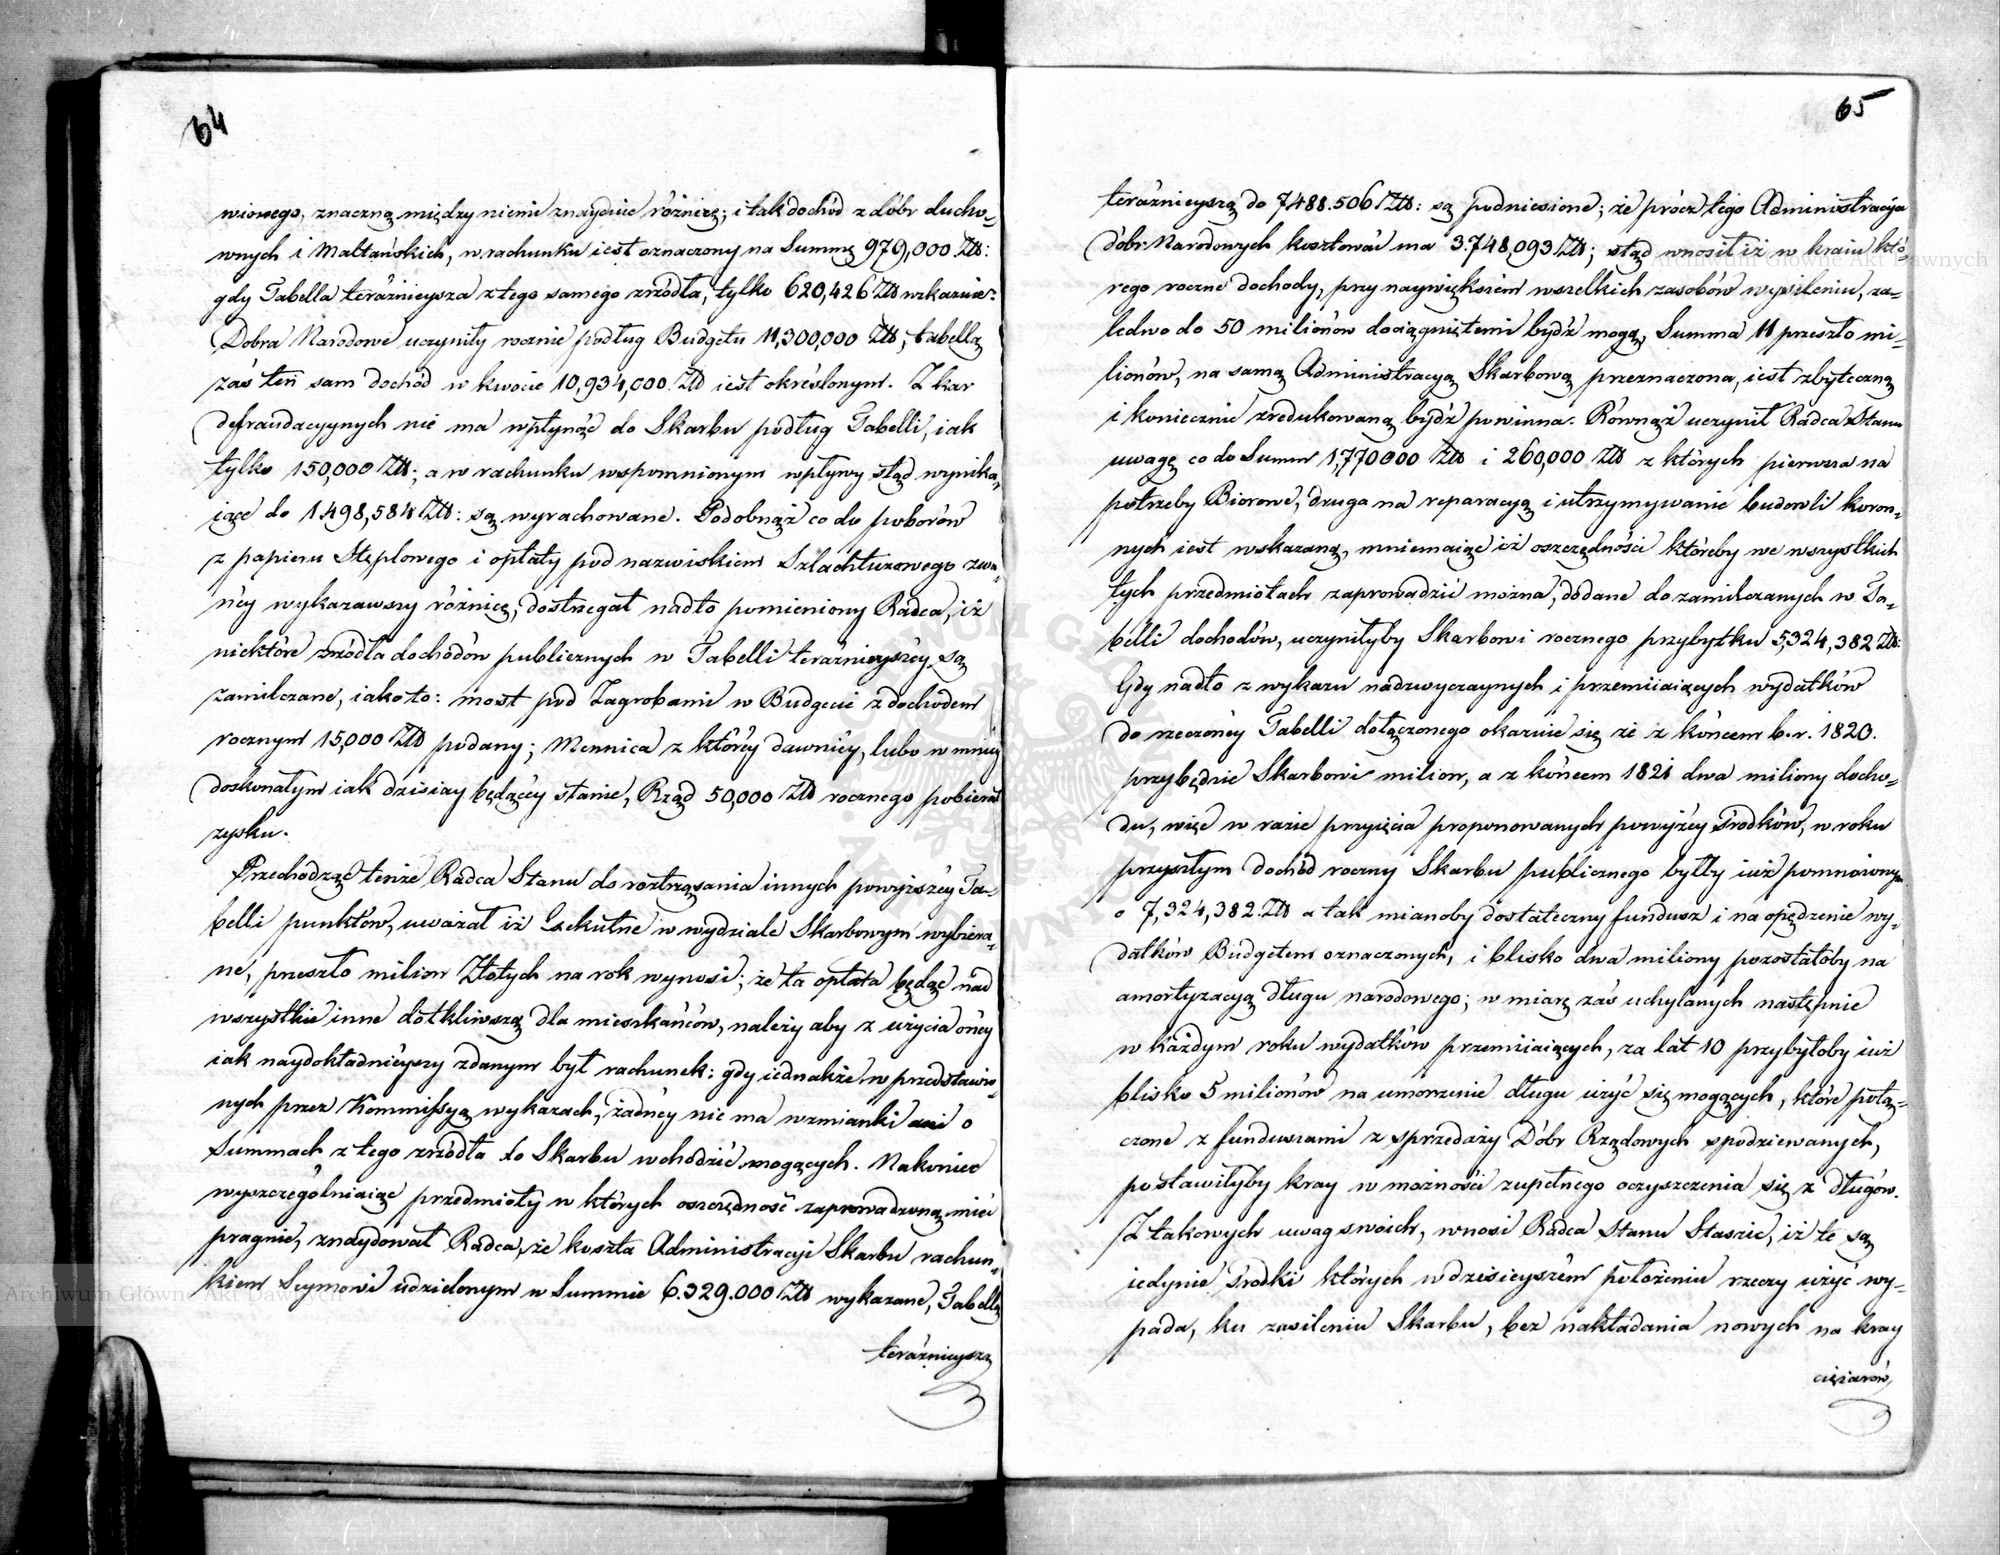 64
wionego, znaczną między niemi znayduie różnicę; i tak dochód z dóbr ducho-
wnych i Maltańskich, w rachunku iest oznaczony na Summę 979,000 Złł:
gdy Tabella teraznieysza z tego samego zrzódła, tylko 620,426 Złł wskazuie:
Dobra Narodowe uczyniły rocznie podług Budgetu 11,300,000 Złł, tabellą
zaś ten sam dochód w kwocie 10,934,000. Złł iest określonym. Z kar
defraudacyynych nie ma wpłynąć do Skarbu podług Tabelli, iak
tylko 150,000 Złł; a w rachunku wspomnionym wpływy ztąd wynika-
iące do 1498,584 Złł: są wyrachowane. Podobnąż co do poborów
z papieru Stęplowego i opłaty pod nazwiskiem Szlachtuzowego zwa-
néy wykazawszy różnicę, dostrzegał nadto pomieniony Radca, iż
niektóre zrzódła dochodów publicznych w Tabelli teraznieyszéy są
zamilczane, iako to: most pod Zagrobami w Budgecie z dochodem
rocznym 15,000 Złł podany; Mennica z któréy dawniéy, lubo w mniéy
doskonałym iak dzisiay będącéy stanie, Rząd 50,000 Złł rocznego pobierał
zysku.
Przechodząc tenże Radca Stanu do roztrząsania innych powyższéy Ta-
belli punktów, uważał iż Exekutne w wydziale Skarbowym wybiera-
ne, przeszło milion Złotych na rok wynosi; że ta opłata będąc nad
wszystkie inne dotkliwszą dla mieszkańców, należy aby z użycia onéy
iak naydokładnieyszy zdanym był rachunek; gdy iednakże w przedstawio-
nych przez Kommissyą wykazach, żadnéy nie ma wzmianki ani o
Summach z tego zrzódła do Skarbu wchodzić mogących. Nakoniec
wyszczególniaiąc przedmioty w których oszczędność zaprowadzoną mieć
pragnie, znaydował Radca, że koszta Administracyi Skarbu rachun-
kiem Seymowi udzielonym w Summie 6.329.000 Złł wykazane, Tabellą
teraznieyszą
65
teraznieyszą do 7488.506 Złł: są podniesione; że prócz tego Administracya
dóbr Narodowych kosztować ma 3.748,093 Złł; ztąd wnosił iż w kraiu któ-
rego roczne dochody, przy naywiększém wszelkich zasobów wysileniu, za-
ledwo do 50 milionów dociągniętemi bydź mogą, Summa 11 przeszło mi-
lionów, na samą Administracyą Skarbową przeznaczona, iest zbyteczną
i koniecznie zredukowaną bydź powinna. Równąż uczynił Radca Stanu
uwagę co do Summ 1,770000 Złł i 260,000 Złł z których pierwsza na
potrzeby Biorowe, druga na reparacyą i utrzymywanie budowli koron-
nych iest wskazaną, mniemaiąc iż oszczędności któreby we wszystkich
tych przedmiotach zaprowadzić można, dodane do zamilczanych w Ta-
belli dochodów, uczyniłyby Skarbowi rocznego przybytku 5,324,382 Złł.
Gdy nadto z wykazu nadzwyczaynych i przemiiaiących wydatków
do rzeczonéy Tabelli dołączonego okazuie się że z końcem b.r. 1820.
przybędzie Skarbowi milion, a z końcem 1821 dwa miliony docho-
du, więc w razie przyięcia proponowanych powyżéy środków, w roku
przyszłym dochód roczny Skarbu publicznego byłby iuż pomnożonym
o 7,324,382. Złł a tak mianoby dostateczny fundusz i na opędzenie wy-
datków Budgetem oznaczonych, i blisko dwa miliony pozostałoby na
amortyzacyą długu narodowego; w miarę zaś uchylanych następnie
w każdym roku wydatków przemiiaiących, za lat 10 przybyłoby iuż
blisko 5 milionów na umorzenie długu użyć się mogących, które połą-
czone z funduszami z sprzedaży Dóbr Rządowych spodziewanych,
postawiłyby kray w możności zupełnego oczyszczenia się z długów.
Z takowych uwag swoich, wnosi Radca Stanu Staszic, iż te są
iedynie środki których w dzisieyszém położeniu rzeczy użyć wy-
pada, ku zasileniu Skarbu, bez nakładania nowych na kray
ciężarów,
Archiwum Główne Akt Dawnych
Archiwum Główne Akt Dawnych